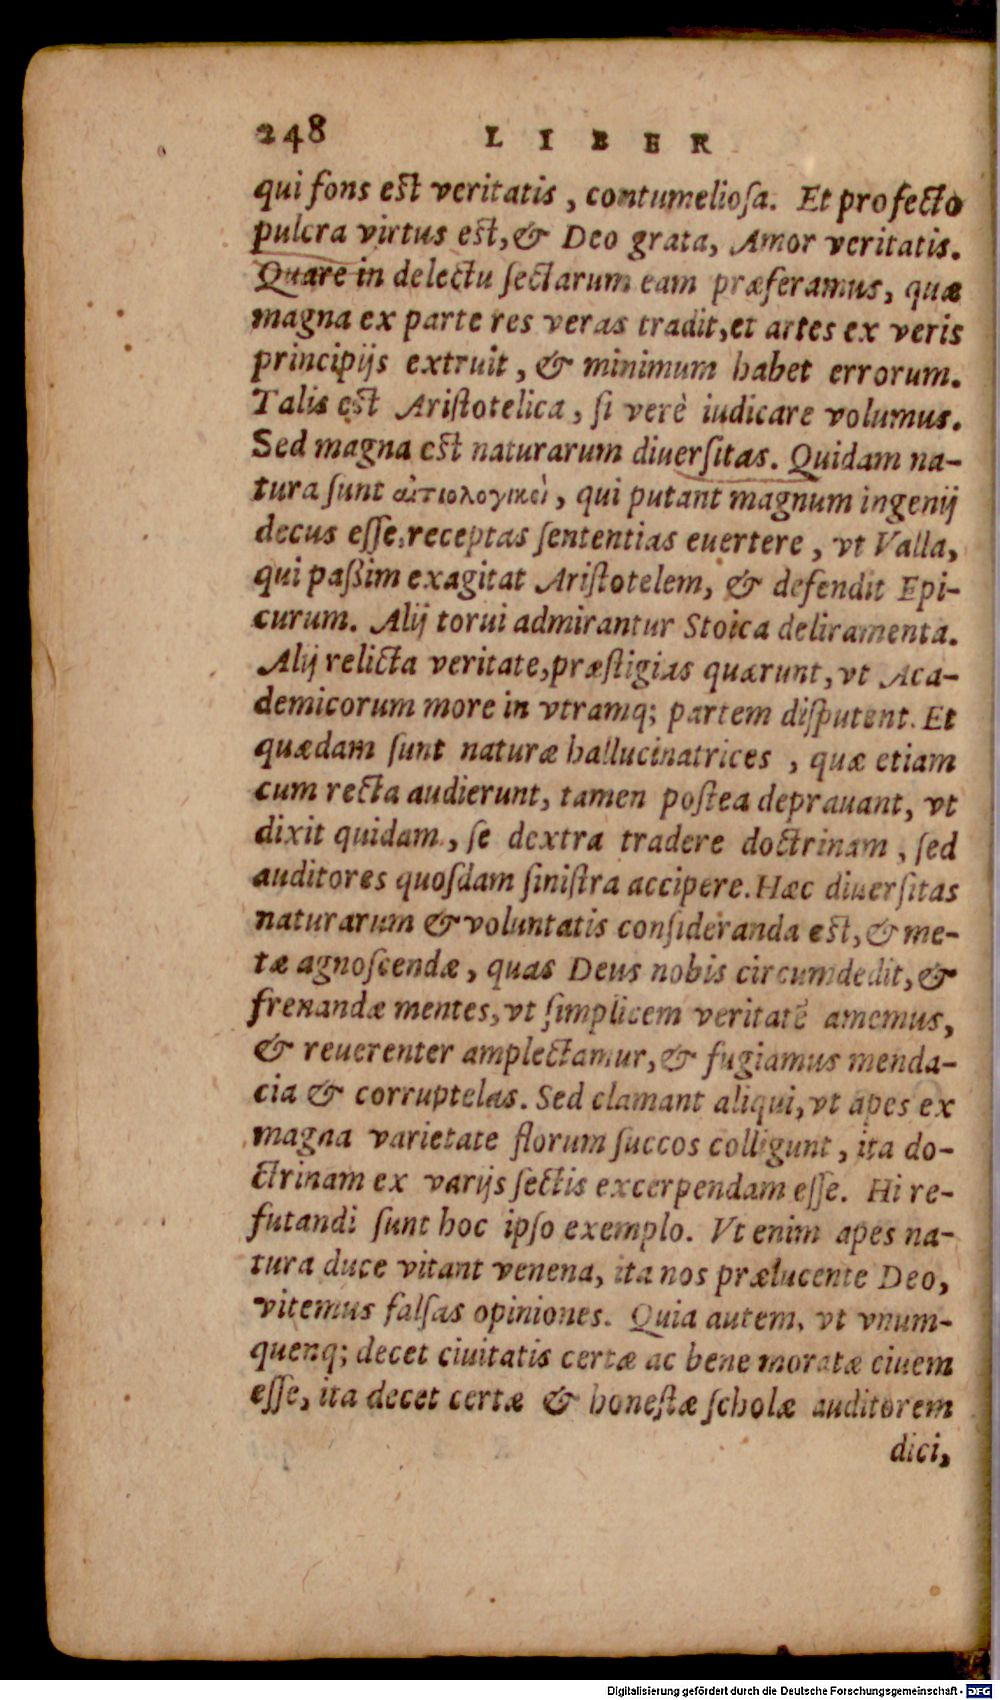 248 LIBER
qui fons est veritatis, contumeliosa. Et profecto
pulcra virtus est, & Deo grata, Amor veritatis.
Quare in delectu sectarum eam præferamus, quæ
magna ex parte res veras tradit, et artes ex veris
principijs extruit, & minimum habet errorum.
Talis est Aristotelica, si verè iudicare volumus.
Sed magna est naturarum diuersitas. Quidam na-
tura sunt , qui putant magnum ingenij
decus esse, receptas sententias euertere, vt Valla,
qui paßim exagitat Aristotelem, & defendit Epi-
curum. Alij torui admirantur Stoica deliramenta.
Alij relicta veritate, præstigias quærunt, vt Aca-
demicorum more in vtramq; partem disputent. Et
quædam sunt naturæ hallucinatrices, quæ etiam
cum recta audierunt, tamen postea deprauant, vt
dixit quidam, se dextra tradere doctrinam, sed
auditores quosdam sinistra accipere. Hæc diuersitas
naturarum & voluntatis consideranda est, & me-
tæ agnoscendæ, quas Deus nobis circumdedit, &
frenandæ mentes, vt simplicem veritatẽ amemus,
& reuerenter amplectamur, & fugiamus menda-
cia & corruptelas. Sed clamant aliqui, vt apes ex
magna varietate florum succos colligunt, ita do-
ctrinam ex varijs sectis excerpendam esse. Hi re-
futandi sunt hoc ipso exemplo. Vt enim apes na-
tura duce vitant venena, ita nos prælucente Deo,
vitemus falsas opiniones. Quia autem, vt vnum-
quenq; decet ciuitatis certæ ac bene moratæ ciuem
esse, ita decet certæ & honestæ scholæ auditorem
dici,
Digitalisierung gefördert durch die Deutsche Forschungsgemeinschaft - DFG